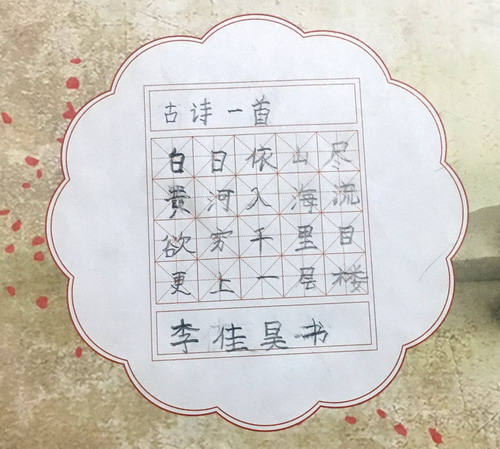 古诗一首
白日依山尽
黄河入海流
欲穷千里目
更上一层楼
李佳昊书